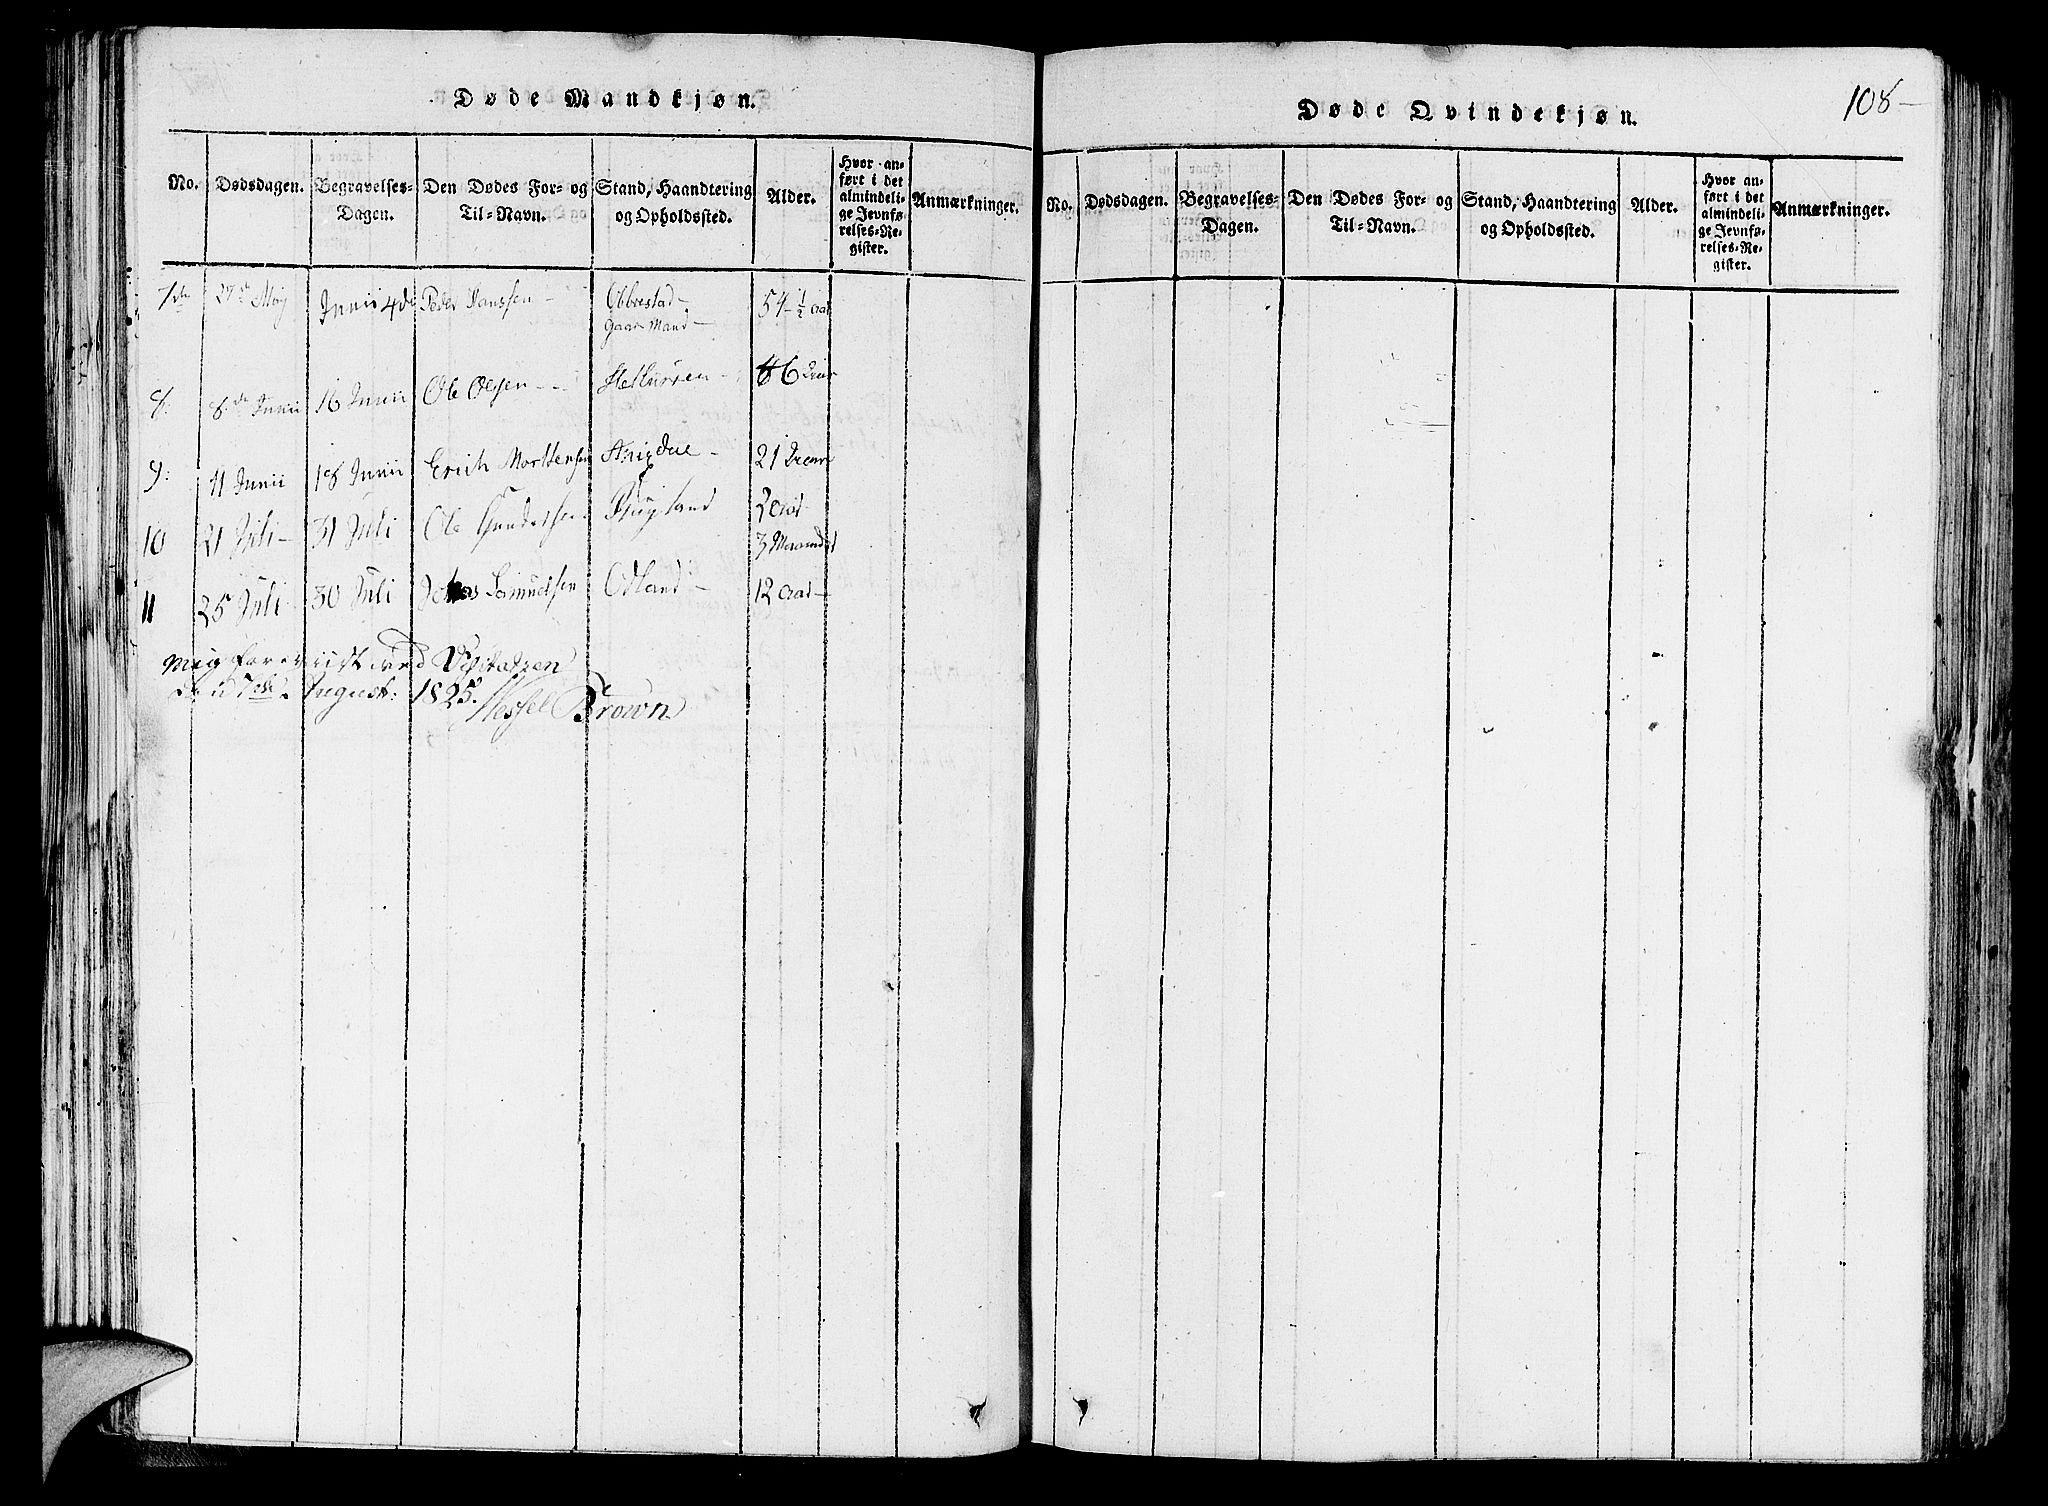 Døde Mandkjøn.
No. Dødsdagen. Begravelses-Dagen. Den Dødes For- og Til-Navn. Stand, Haandtering og Opholdssted. Alder. Hvor anført i det almindelige Jevnførelses-Register. Anmærkninger.
7de 27de Maj Junii 4de Peder Hanssen Obbrestad 54 1/2 aar
Gaar Mand
8. 8de Junii 16 Junii Ole Olsen 46 Aar
9. 11 Junii 18 Junii Erich Morttensen 21
10 21 Juli 31 Juli Ole Gundersen 2 aar
3 Maaneder
11 25 Juli 30 Juli Samuelsen Odland 12 aar
Mig foreviist ved Visitatzen
den 7de August 1825. Hessel Brown
108
Døde Qvindekjøn.
No. Dødsdagen. Begravelses-Dagen. Den Dødes For- og Til-Navn. Stand, Haandtering og Opholdssted. Alder. Hvor anført i det almindelige Jevnførelses-Register. Anmærkninger.